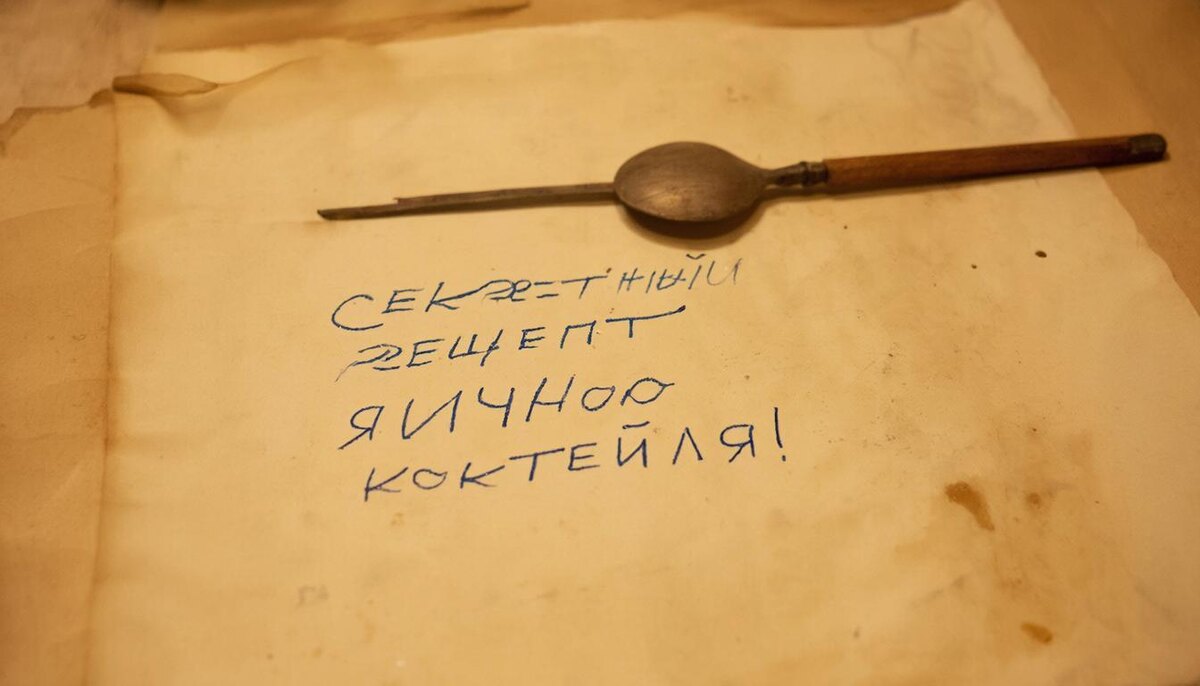 СЕКРЕТНЫЙ
РЕЩЕПТ
ЯИЧНОО
КОКТЕЙЛЯ!